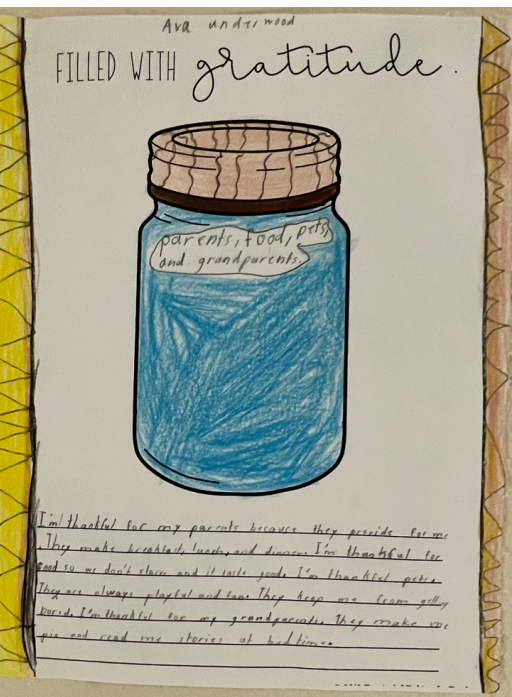 Ava underwood
FILLED WITH gratitude.
parents, food, pets,
and grandparents.
I'm thankful for my parents because they provide for me
. They make breakfast, lunch, and dinner. I'm thankful for
food so we don't starve and it taste good. I'm thankful pets.
They are always playful and fun. They keep me from getting
bored. I'm thankful for my grandparents. They make me
pie and read me stories at bedtime.